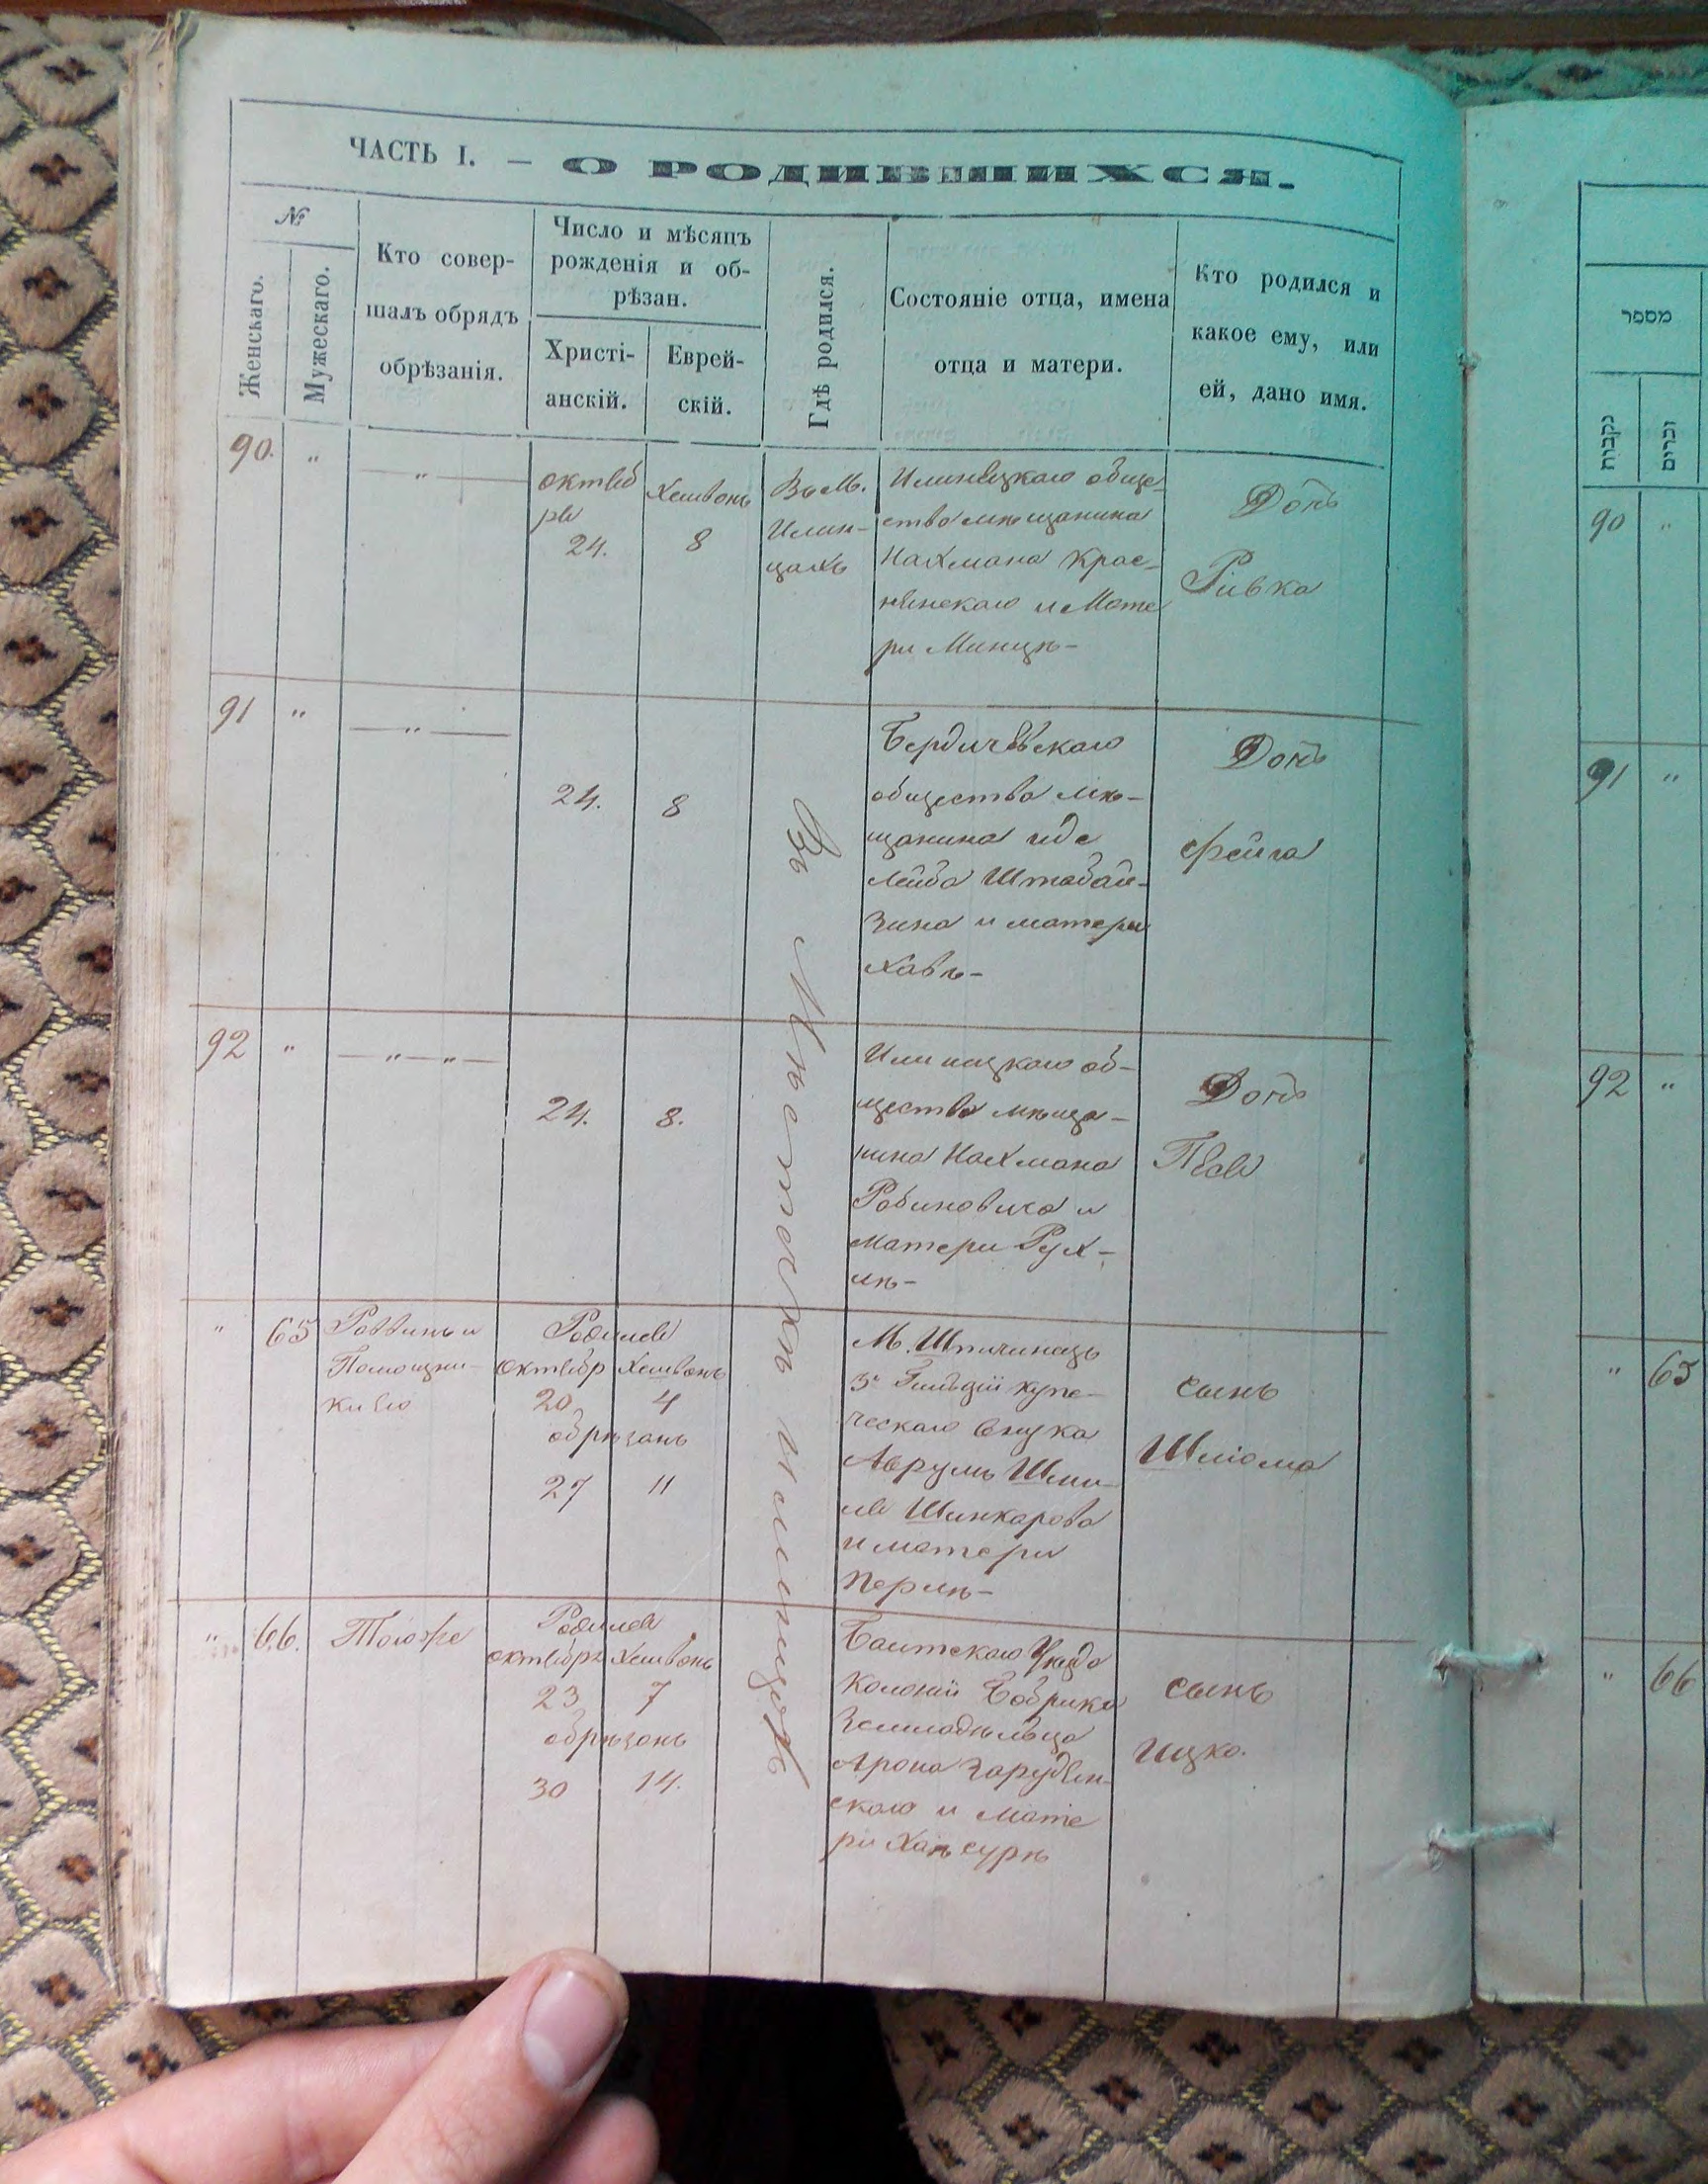 ЧАСТЬ I. — О РОДИВШИХСЯ.
№
Женскаго.
Мужескаго.
Кто совер-
шалъ обрядъ
обрѣзанія.
Число и мѣсяцъ
рожденія и об-
рѣзан.
Христі-
анскій.
Еврей-
скій.
Гдѣ родился.
Состояніе отца, имена
отца и матери.
Кто родился и
какое ему, или
ей, дано имя.
90. " — " —
октяб
ря
24.
Хешвонъ
8
Въ М.
Илин-
цахъ
Илинецкаго обще-
ства мѣщанина
Нахмана Крас-
нянскаго и Мате
ри Минцѣ-
Дочь
Ривка
91 " — " —
24. 8
Въ Мѣстечкѣ Илинцахъ
Бердичевскаго
общества мѣ-
щанина
Лейба
зина и матери
Хавѣ-
Дочь
Фейга
92 " — " — " —
24. 8.
Илинецкаго об-
щества мѣща-
нина Нахмана
Рабиновича и
матери Рух-
лѣ-
Дочь
" 65
Раввинъ и
Помощни-
къ его
Родился
октябр Хешвонъ
20 4
обрѣзанъ
27 11
М.
3й Гильдіи купе-
ческаго внука
Аврумъ Шми-
ля Шинкарова
и матери
Перлѣ-
сынъ
Шліома
" 66. Тоже
Родился
октября Хешвонъ
23 7
обрѣзанъ
30 14.
Балтскаго Уѣзда
Колоніи Бобрика
Земледѣльца
Арона Заруден-
скаго и Мате
ри Хаѣ Сурѣ
сынъ
Ицко.
מספר
נקבות
זכרים
90 "
91 "
92 "
" 65
" 66